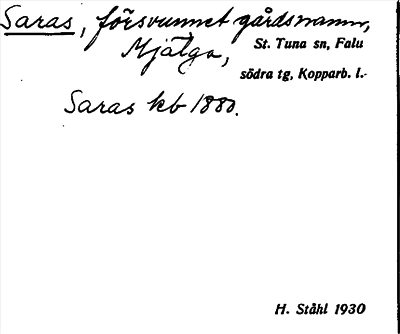 Saras, försvunnet gårdsnamn,
Mjälga, St. Tuna sn, Falu
södra tg, Kopparb. l.
Saras kb 1880.
H. Ståhl 1930